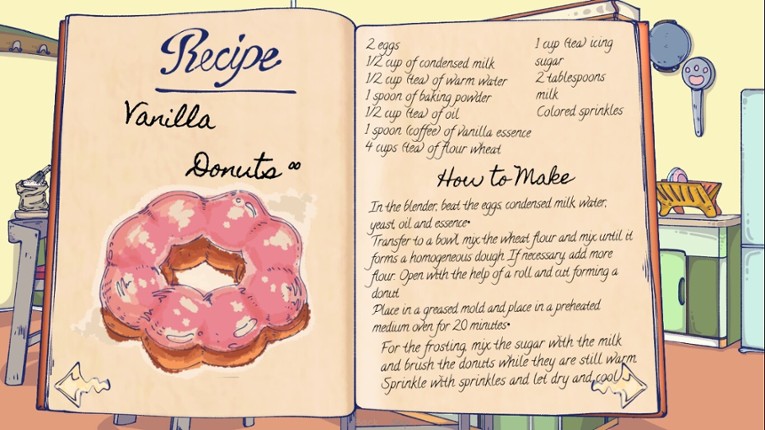 Recipe
Vanilla
Donuts
2 eggs
1/2 cup of condensed milk
1/2 cup (tea) of warm water
1 spoon of baking powder
1/2 cup (tea) of oil
1 spoon (coffee) of vanilla essence
4 cups (tea) of flour wheat
1 cup (tea) icing
sugar
2 tablespoons
milk
Colored sprinkles
How to Make
In the blender, beat the eggs, condensed milk, water,
yeast, oil and essence.
Transfer to a bowl, mix the wheat flour and mix until it
forms a homogeneous dough. If necessary add more
flour. Open with the help of a roll and cut forming a
donut.
Place in a greased mold and place in a preheated
medium oven for 20 minutes.
For the frosting, mix the sugar with the milk
and brush the donuts while they are still warm.
Sprinkle with sprinkles and let dry and cool.